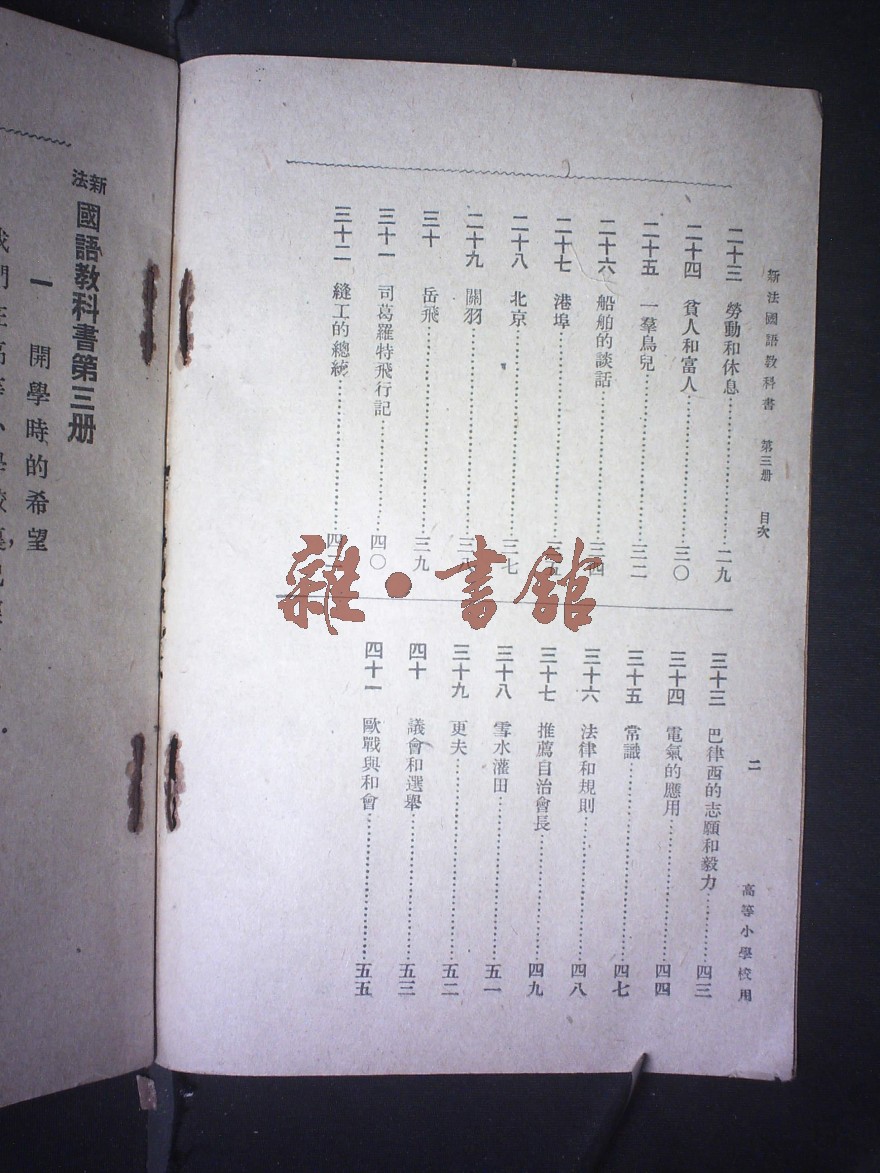 新法國語教科書 第三册 目次 二 高等小學校用
二十三 勞動和休息……二九
二十四 貧人和富人……三〇
二十五 一羣鳥兒……三二
二十六 船舶的談話……三四
二十七 港埠
二十八 北京……三七
二十九 關羽
三十 岳飛……三九
三十一 司葛羅特飛行記……四〇
三十二 縫工的總統
三十三 巴律西的志願和毅力……四三
三十四 電氣的應用……四四
三十五 常識……四七
三十六 法律和規則……四八
三十七 推薦自治會長……四九
三十八 雪水灌田……五一
三十九 更夫……五二
四十 議會和選舉……五三
四十一 歐戰與和會……五五
新法國語教科書第三册
一 開學時的希望
雜·書館